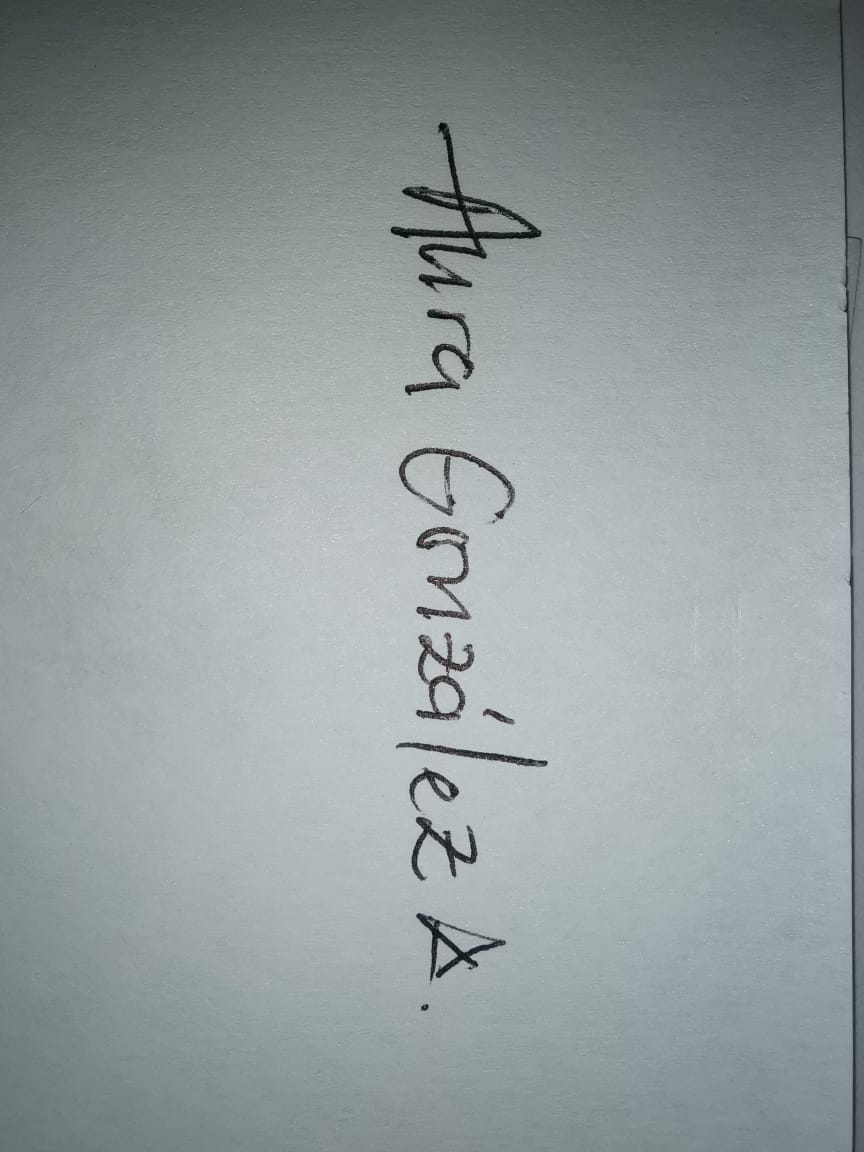 Aura González A.